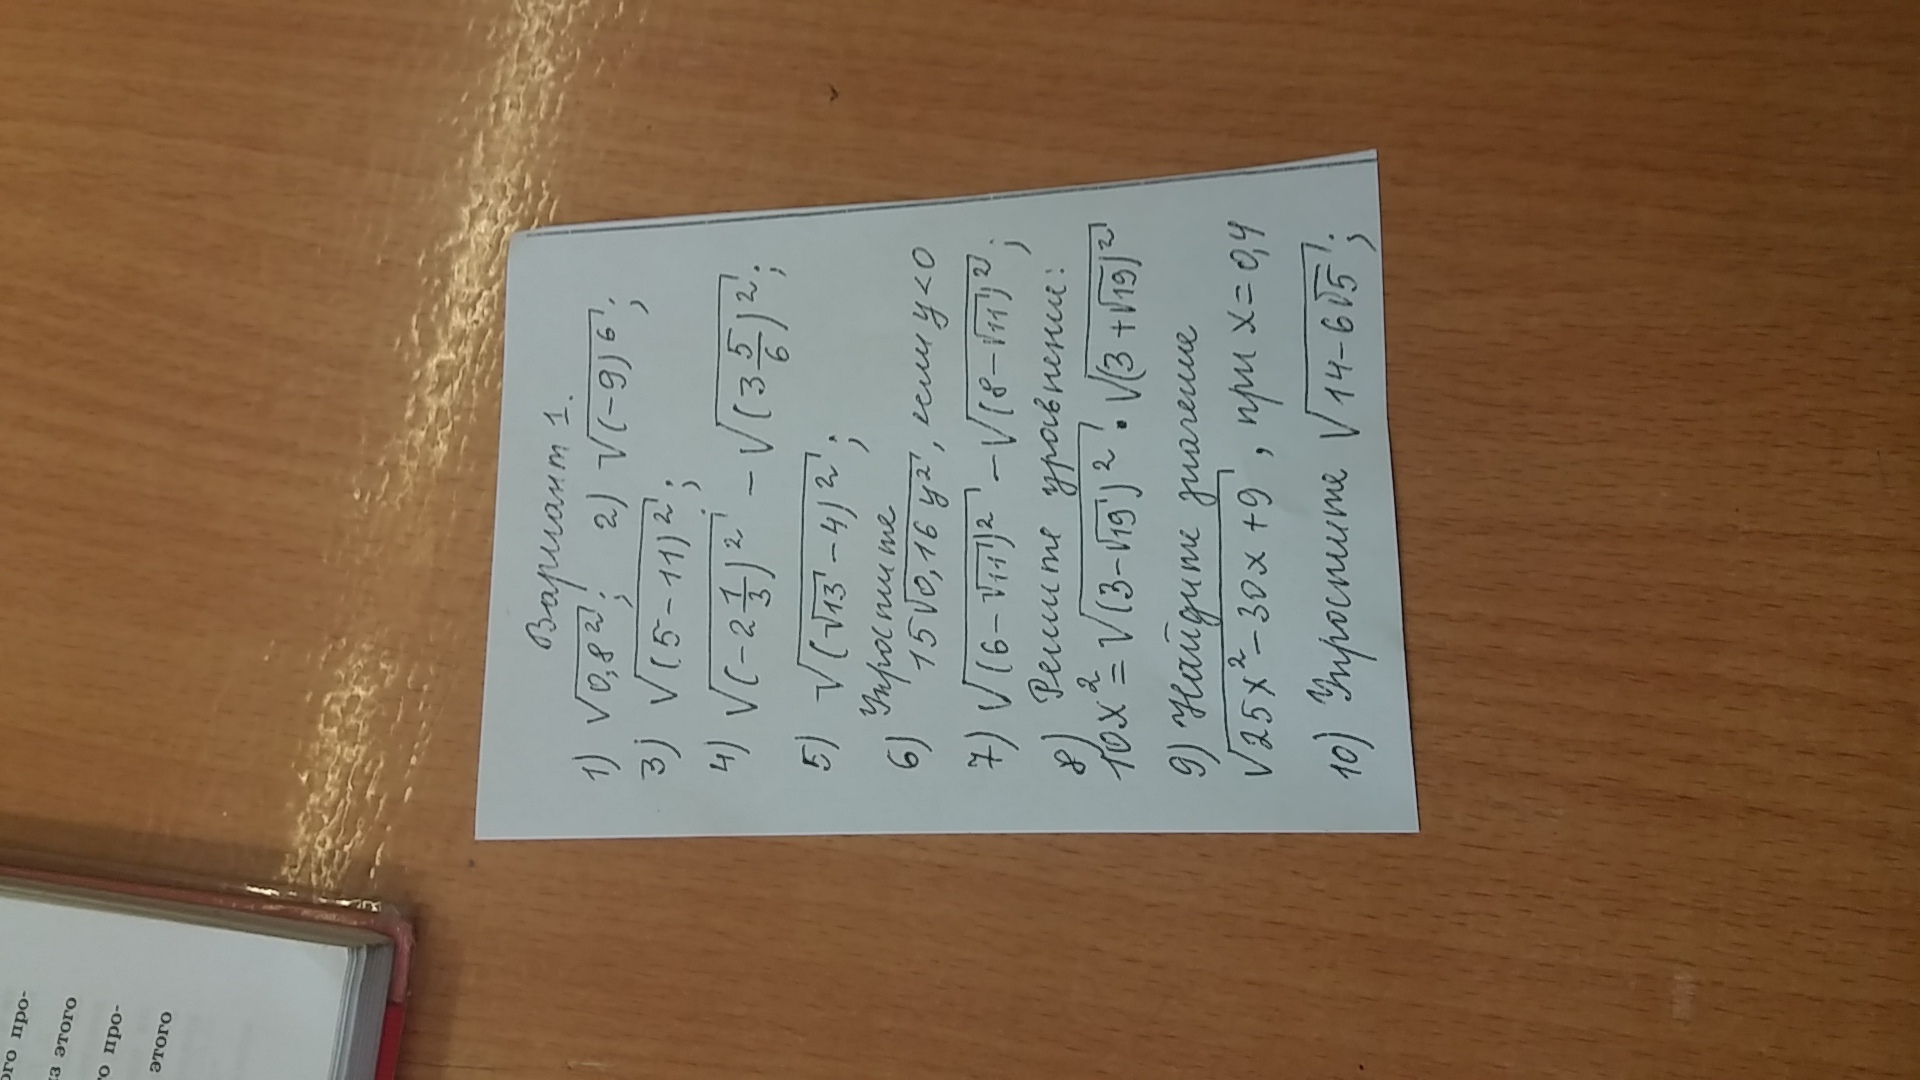 Вариант 1.
1) √0,8²; 2) √(-9)⁶;
3) √(5-11)²;
4) √(-2 1/3)² - √(3 5/6)²;
5) √(√13-4)²;
6) Упростите
15√0,16y², если y<0
7) √(6-√11)² - √(8-√11)²;
8) Решите уравнение:
10x² = √(3-√19)² · √(3+√19)²
9) Найдите значение
√25x²-30x+9, при x=0,4
10) Упростите √14-6√5;
ого про-
за этого
о про-
этого